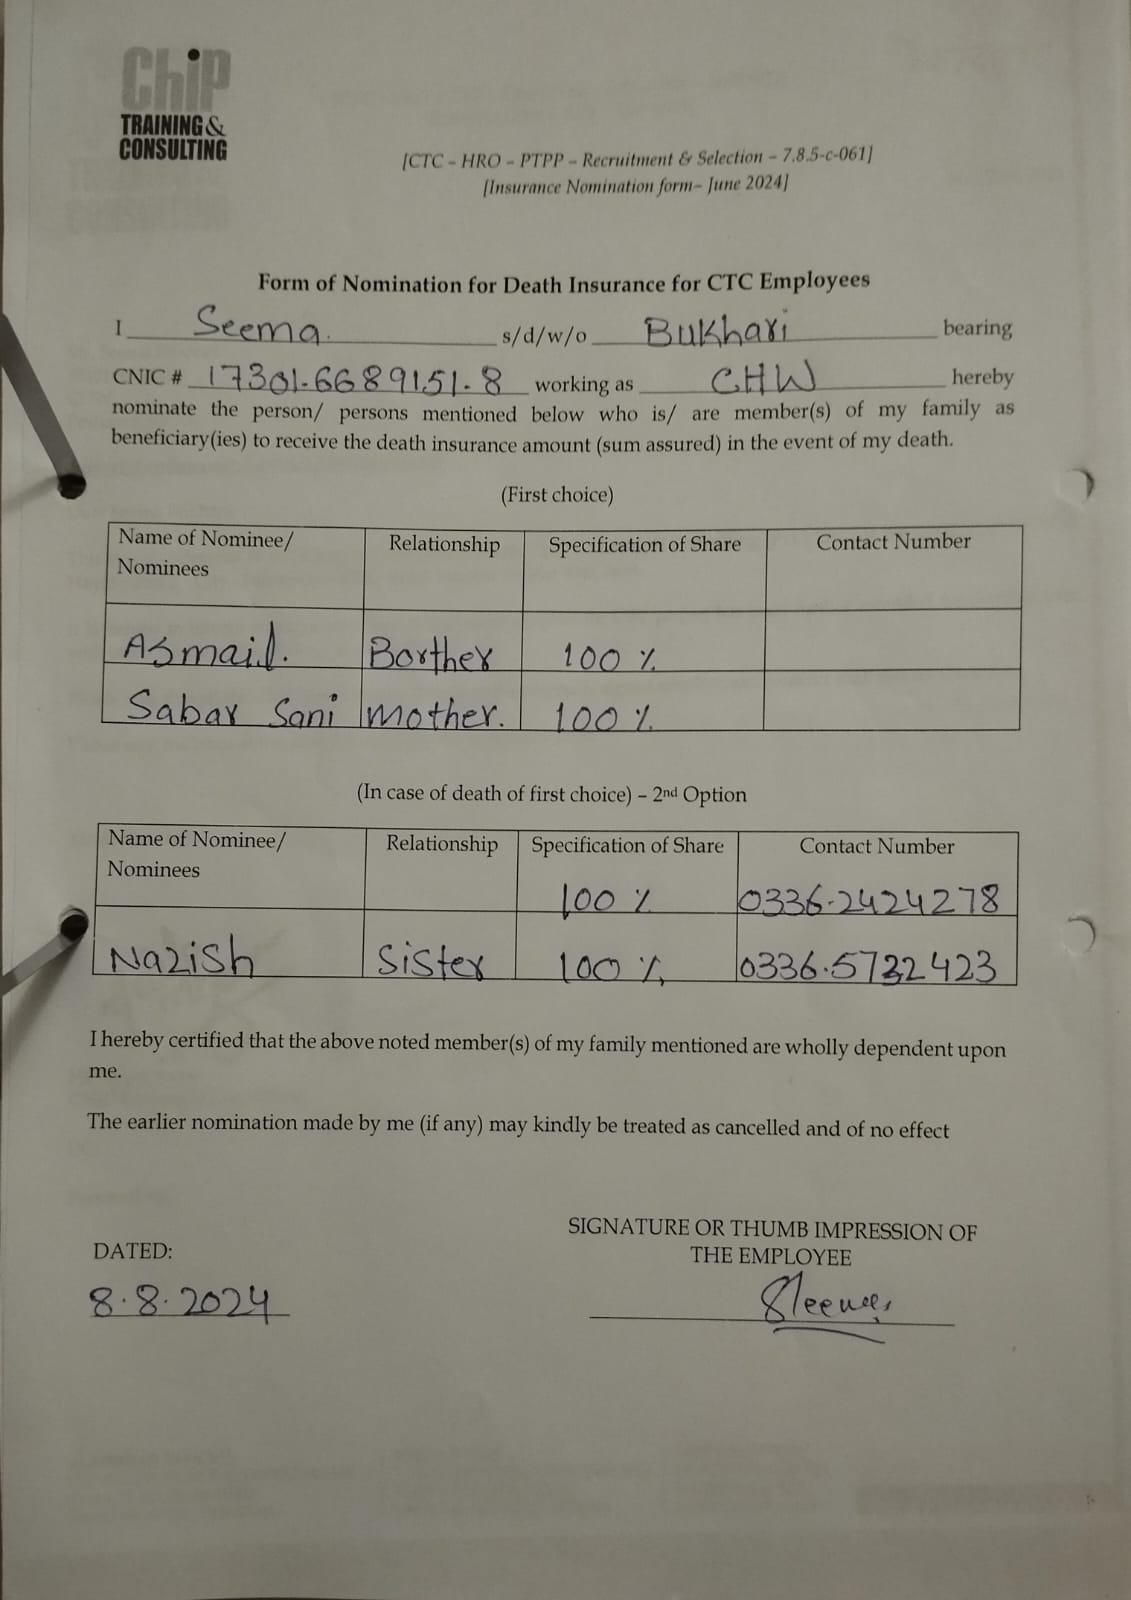 Chip
TRAINING &
CONSULTING
[CTC – HRO – PTPP – Recruitment & Selection – 7.8.5-c-061]
[Insurance Nomination form– June 2024]
Form of Nomination for Death Insurance for CTC Employees
I Seema. s/d/w/o Bukhari bearing
CNIC # 17301-6689151-8 working as CHW hereby
nominate the person/ persons mentioned below who is/ are member(s) of my family as
beneficiary(ies) to receive the death insurance amount (sum assured) in the event of my death.
(First choice)
Name of Nominee/ Relationship Specification of Share Contact Number
Nominees
Asmail. Borther 100 %
Sabar Sani mother. 100 %
(In case of death of first choice) – 2nd Option
Name of Nominee/ Relationship Specification of Share Contact Number
Nominees
100 % 0336-2424278
Nazish Sister 100 % 0336-5732423
I hereby certified that the above noted member(s) of my family mentioned are wholly dependent upon
me.
The earlier nomination made by me (if any) may kindly be treated as cancelled and of no effect
SIGNATURE OR THUMB IMPRESSION OF
DATED: THE EMPLOYEE
8.8.2024